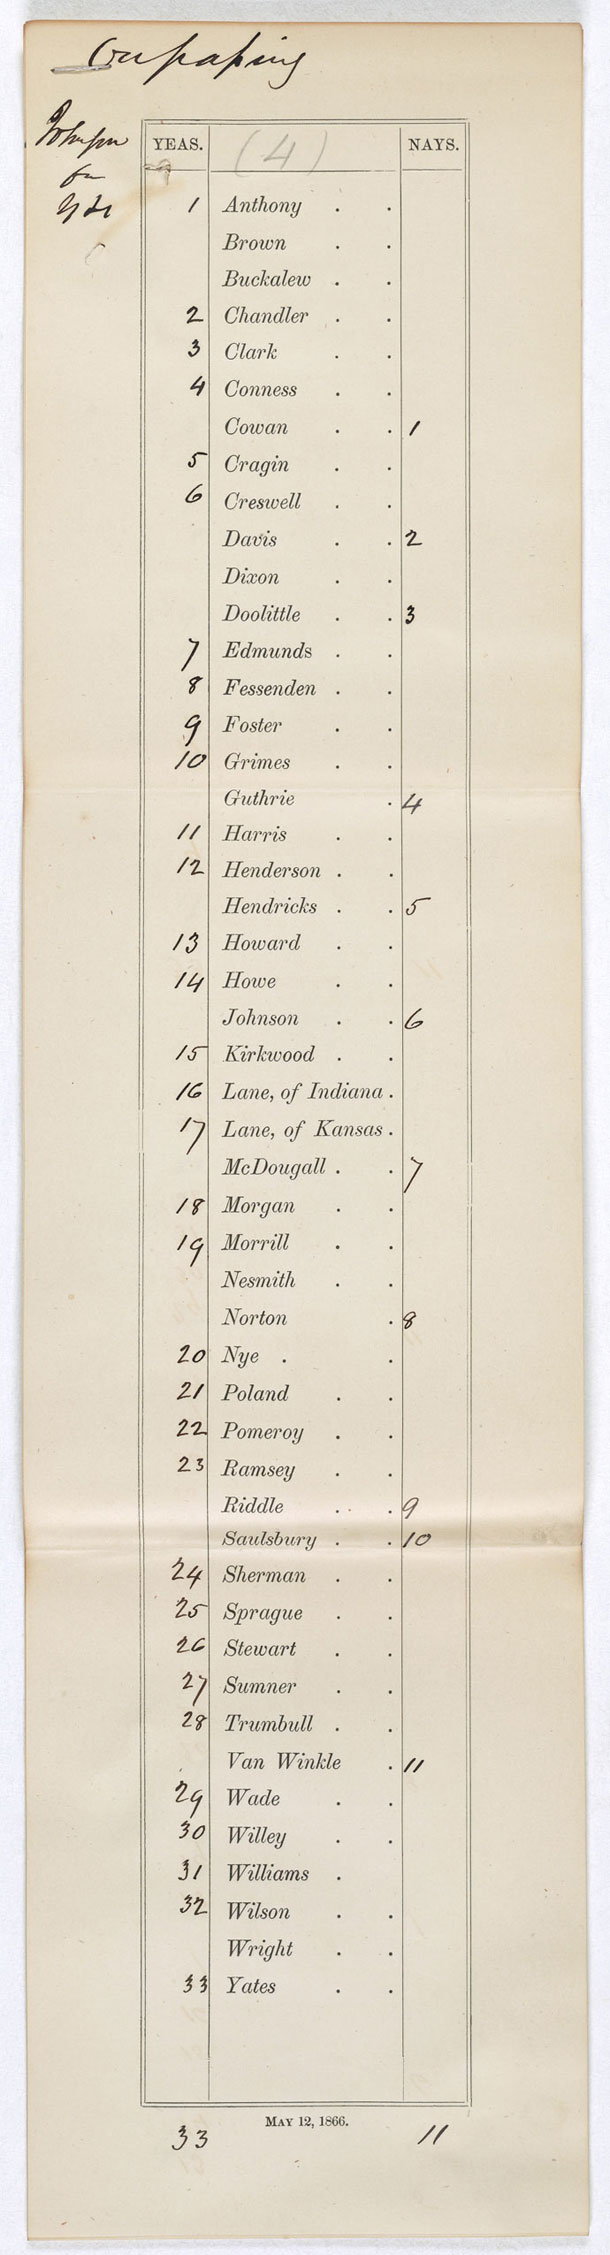 On passing
Johnson
for
YEAS. (4) NAYS.
1 Anthony . .
Brown . .
Buckalew . .
2 Chandler . .
3 Clark . .
4 Conness . .
Cowan . . 1
5 Cragin . .
6 Creswell . .
Davis . . 2
Dixon . .
Doolittle . . 3
7 Edmunds . .
8 Fessenden . .
9 Foster . .
10 Grimes . .
Guthrie . 4
11 Harris . .
12 Henderson . .
Hendricks . . 5
13 Howard . .
14 Howe . .
Johnson . . 6
15 Kirkwood . .
16 Lane, of Indiana .
17 Lane, of Kansas .
McDougall . . 7
18 Morgan . .
19 Morrill . .
Nesmith . .
Norton . 8
20 Nye . .
21 Poland . .
22 Pomeroy . .
23 Ramsey . .
Riddle . . 9
Saulsbury . . 10
24 Sherman . .
25 Sprague . .
26 Stewart . .
27 Sumner . .
28 Trumbull . .
Van Winkle . 11
29 Wade . .
30 Willey . .
31 Williams .
32 Wilson . .
Wright . .
33 Yates . .
MAY 12, 1866.
33 11